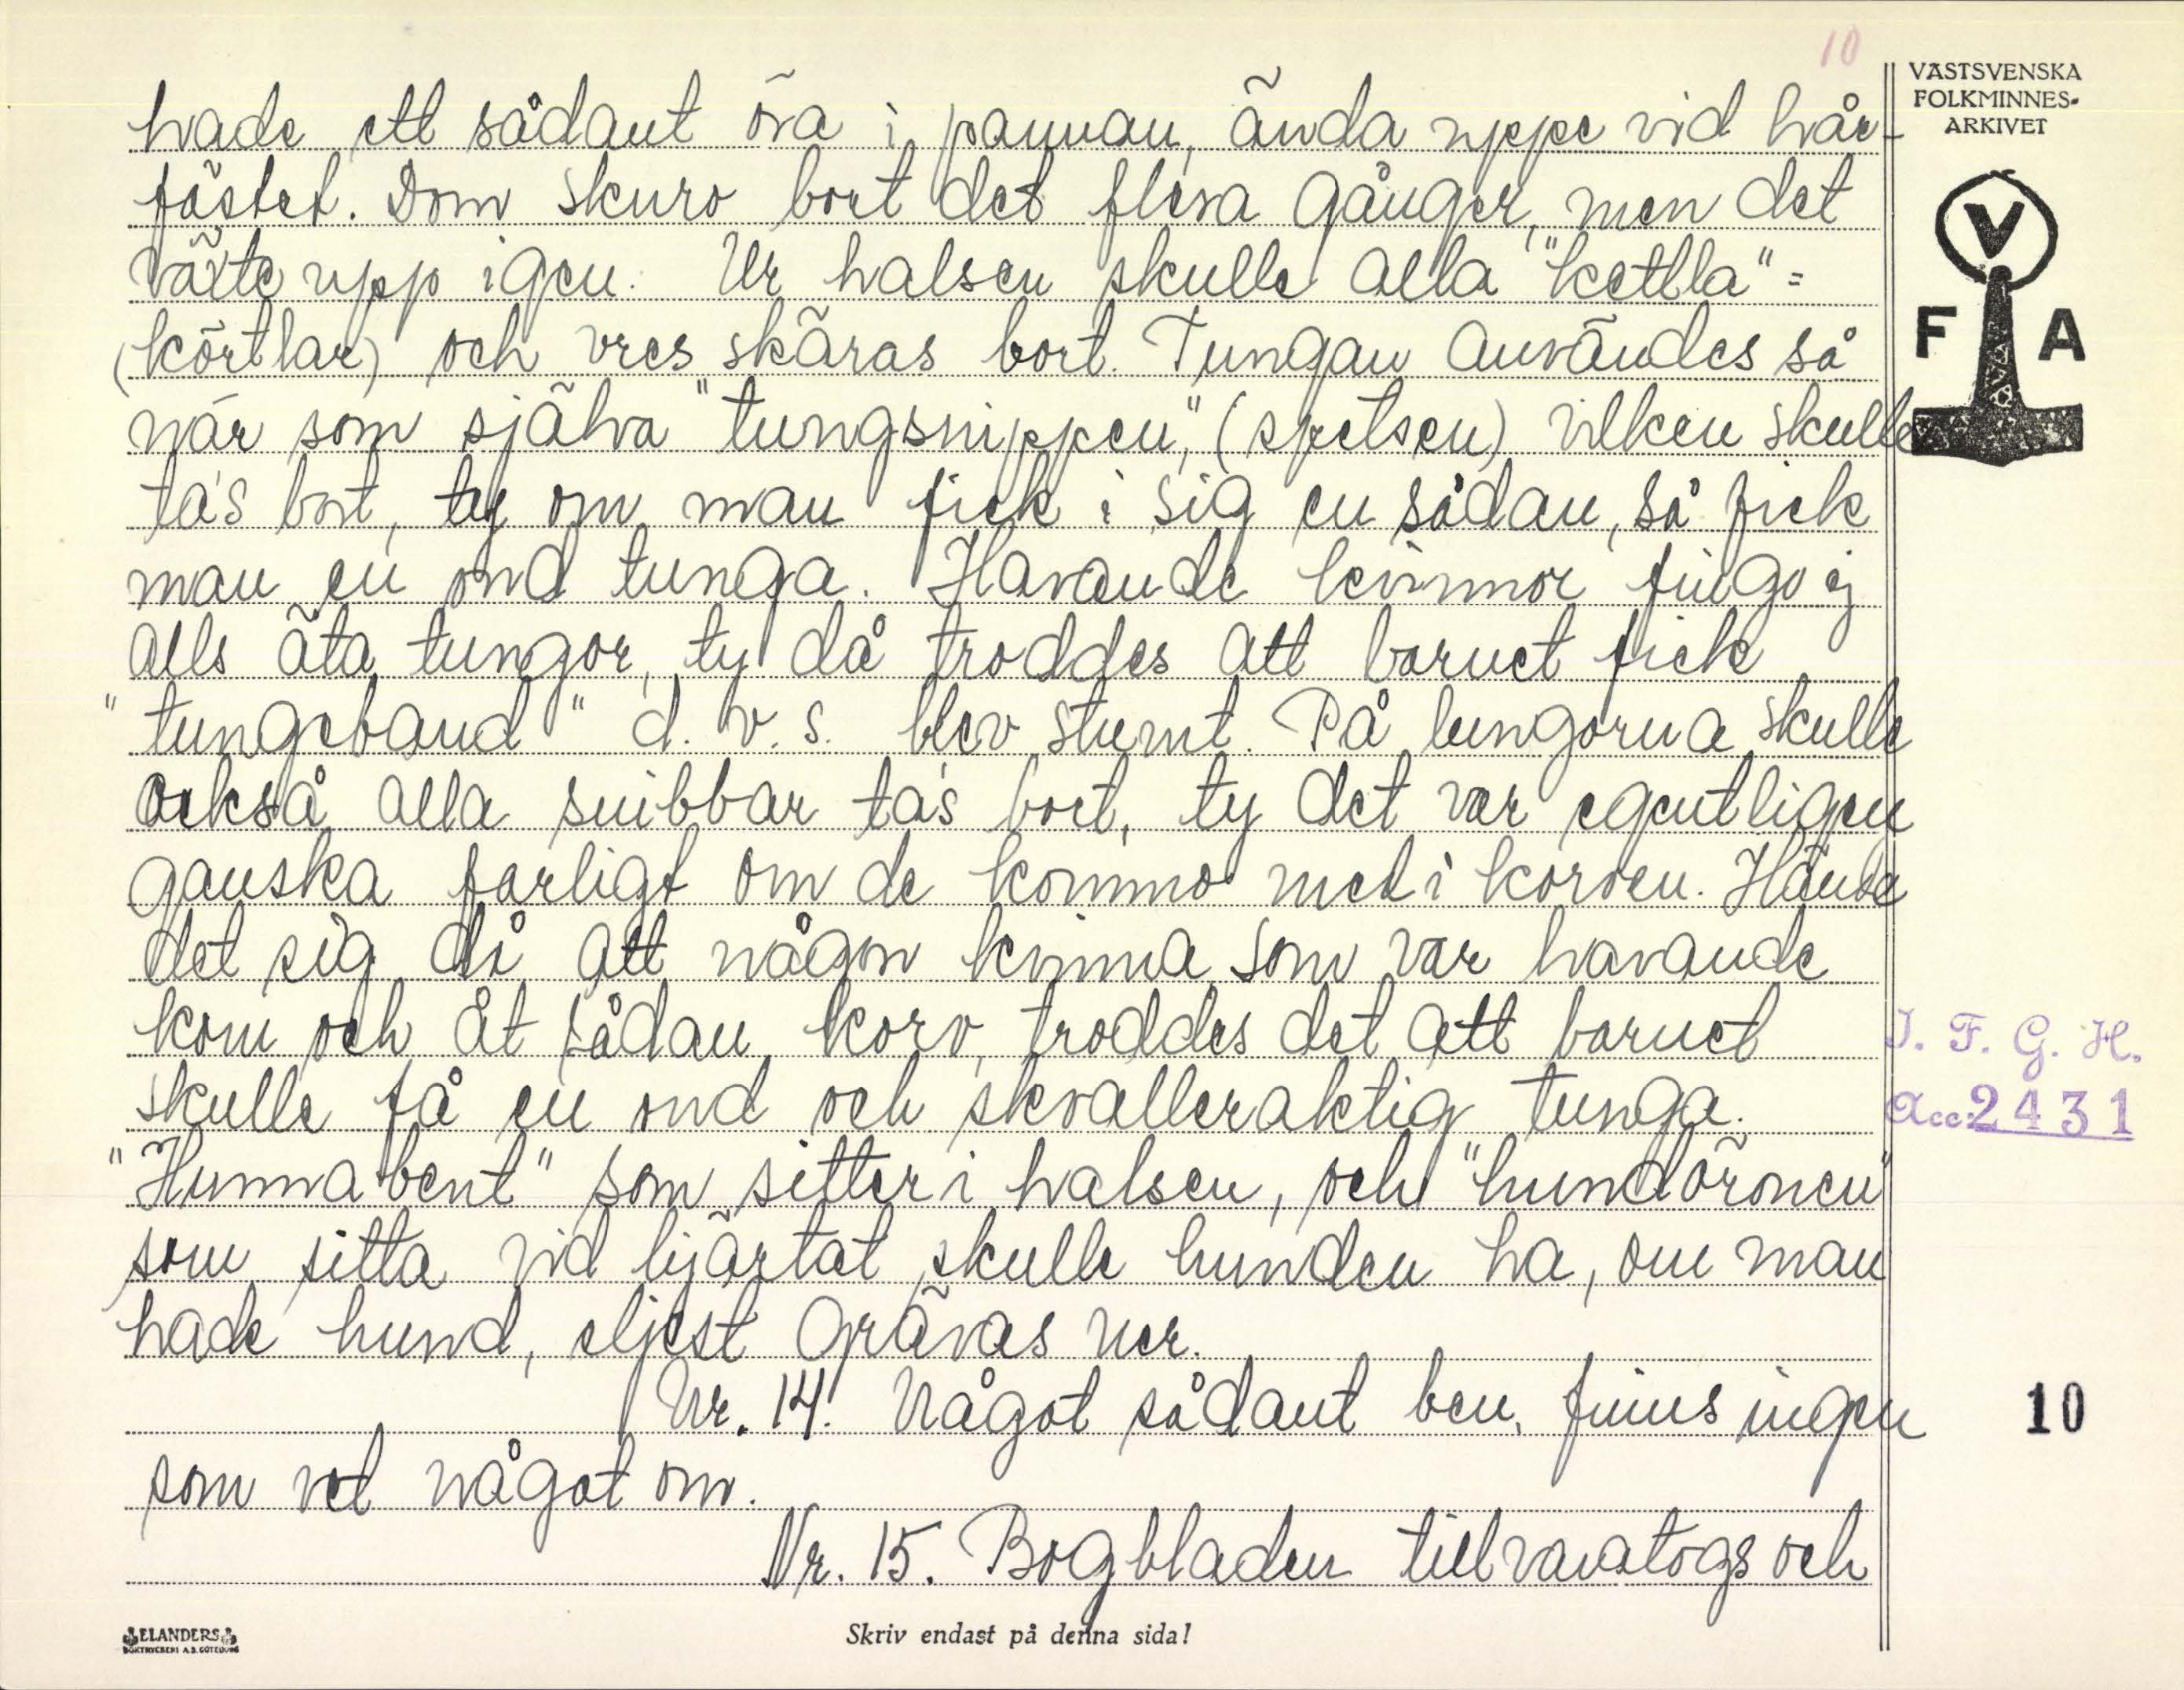 10
VÄSTSVENSKA
FOLKMINNES-
ARKIVET
V
F A
hade ett sådant öra i pannan, ända uppe vid hår-
fästet. Dom skuro bort det flera gånger, men det
växte upp igen. Ur halsen skulle alla "kettla" =
(körtlar) och vres skäras bort. Tungan användes så
när som själva "tungsnippen", (spetsen) vilken skulle
ta's bort, ty om man fick i sig en sådan, så fick
man en ond tunga. Havande kvinnor fingo ej
alls äta tungor, ty då troddes att barnet fick
"tungeband" d. v. s. blev stumt. På lungorna skulle
också alla snibbar ta's bort, ty det var egentligen
ganska farligt om de kommo med i korven. Hände
det sig då att någon kvinna som var havande
kom och åt sådan korv, troddes det att barnet
skulle få en ond och skvalleraktig tunga.
"Hunnabent" som sitter i halsen, och "hundöronen"
som sitta vid hjärtat skulle hunden ha, om man
hade hund, eljest grävas ner.
Nr. 14. Något sådant ben, finns ingen
som vet något om.
Nr. 15. Bogbladen tillvaratogs och
I. F. G. H.
Acc: 2431
10
ELANDERS
BOKTRYCKERI A.B. GÖTEBORG
Skriv endast på denna sida!